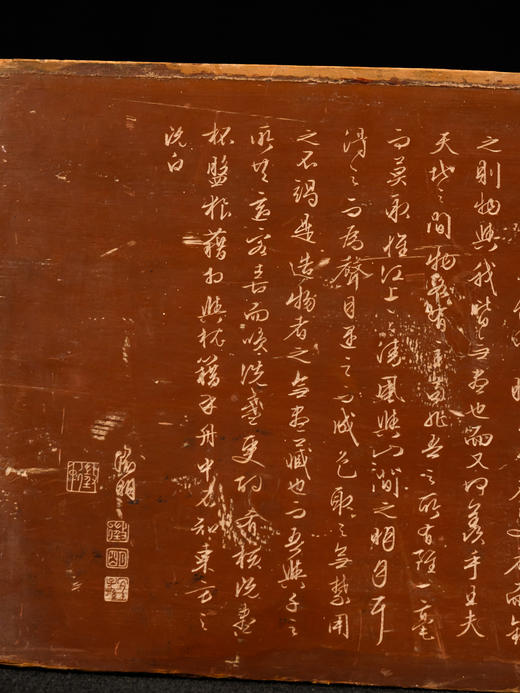 之則物與我皆无盡也而又何羨乎且夫
天地之間物各有主苟非吾之所有雖一毫
而莫取惟江上之清風與山間之明月耳
得之而為聲目遇之而成色取之无禁用
之不竭是造物者之无盡藏也而吾與子之
所共適客喜而笑洗盞更酌肴核既盡
杯盤狼藉相與枕藉乎舟中不知東方之
既白
徵明